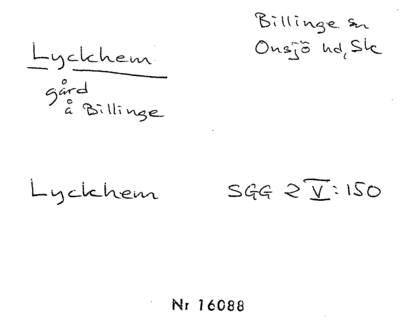 Billinge sn
Onsjö hd, Sk
Lyckhem
gård
å Billinge
Lyckhem SGG 2 V:150
Nr 16088